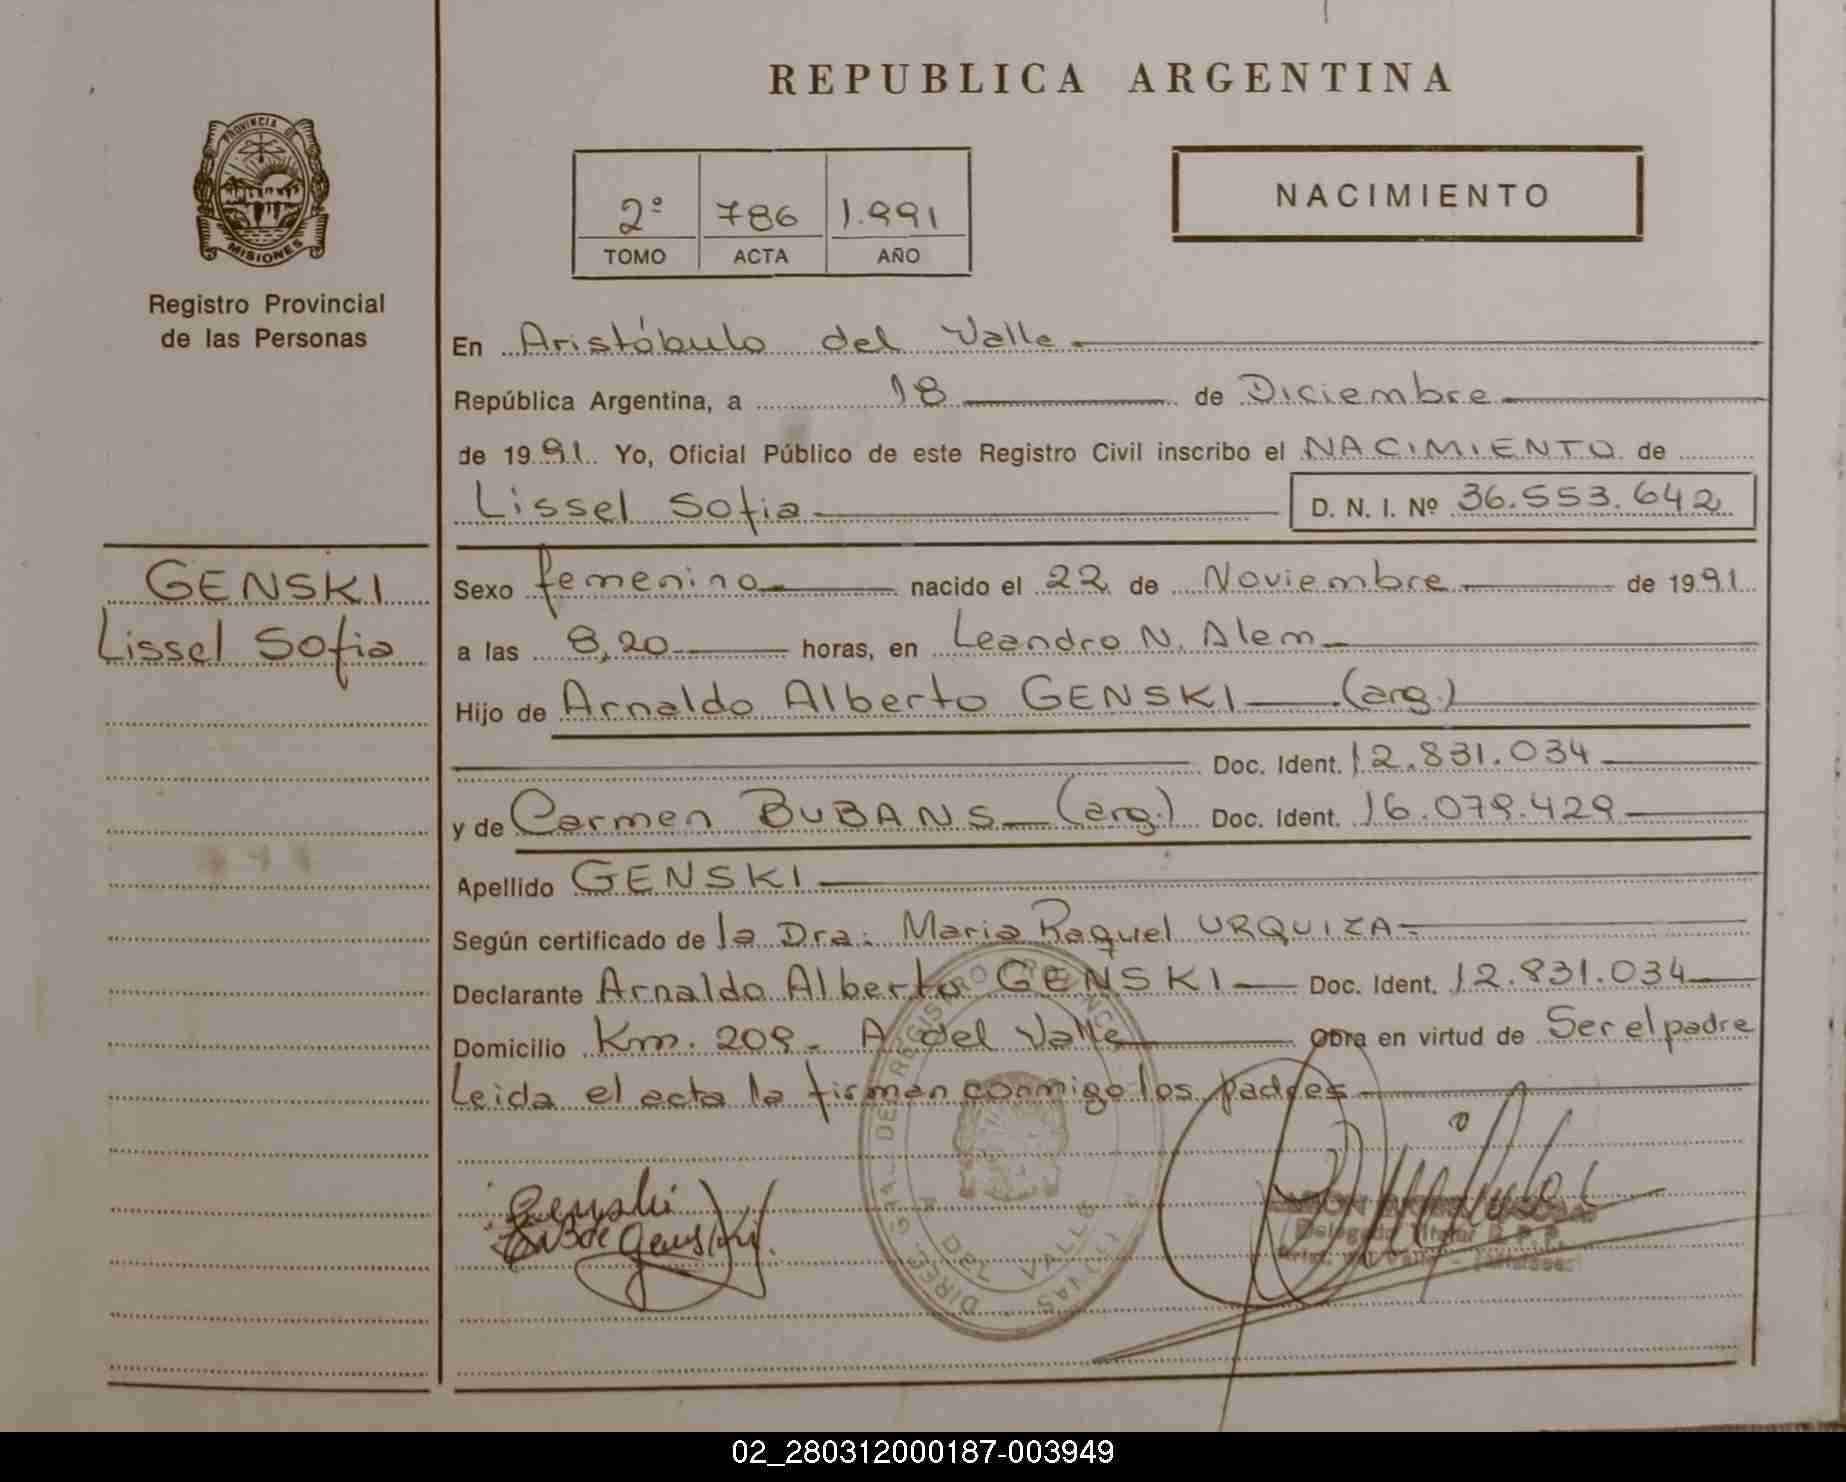 REPUBLICA ARGENTINA
PROVINCIA DE
MISIONES
Registro Provincial
de las Personas
2º 786 1.991
TOMO ACTA AÑO
NACIMIENTO
En Aristóbulo del Valle
República Argentina, a 18 de Diciembre
de 1991. Yo, Oficial Público de este Registro Civil inscribo el NACIMIENTO de
Lissel Sofia D. N. I. Nº 36.553.642
GENSKI
Lissel Sofia
Sexo femenino nacido el 22 de Noviembre de 1991
a las 8,20 horas, en Leandro N. Alem
Hijo de Arnaldo Alberto GENSKI (arg.)
Doc. Ident. 12.831.034
y de Carmen BUBANS (arg.) Doc. Ident. 16.079.429
Apellido GENSKI
Según certificado de la Dra. Maria Raquel URQUIZA
Declarante Arnaldo Alberto GENSKI Doc. Ident. 12.831.034
Domicilio Km. 209 - A. del Valle Obra en virtud de Ser el padre
Leida el acta la firman conmigo los padres
Genski
de Genski
DEL VALLE
02_280312000187-003949